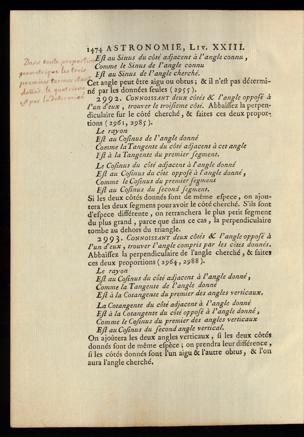 1474 ASTRONOMIE, LIV. XXIII.
Est au Sinus du côté adjacent à l'angle connu,
Comme le Sinus de l'angle connu
Est au Sinus de l'angle cherché.
Cet angle peut être aigu ou obtus; & il n'est pas détermi-
né par les données seules (2955).
2992. CONNOISSANT deux côtés & l'angle opposé à
l'un d'eux, trouver le troisieme côté. Abbaissez la perpen-
diculaire sur le côté cherché, & faites ces deux propor-
tions (2961, 2985).
Le rayon
Est au Cosinus de l'angle donné
Comme la Tangente du côté adjacent à cet angle
Est à la Tangente du premier segment.
Le Cosinus du côté adjacent à l'angle donné
Est au Cosinus du côté opposé à l'angle donné,
Comme le Cosinus du premier segment
Est au Cosinus du second segment.
Si les deux côtés donnés sont de même espece, on ajou-
tera les deux segmens pour avoir le côté cherché. S'ils sont
d'espece différente, on retranchera le plus petit segment
du plus grand, parce que dans ce cas, la perpendiculaire
tombe au dehors du triangle.
2993. CONNOISSANT deux côtés & l'angle opposé à
l'un d'eux, trouver l'angle compris par les côtés donnés.
Abbaissez la perpendiculaire de l'angle cherché, & faites
ces deux proportions (2964, 2988).
Le rayon
Est au Cosinus du côté adjacent à l'angle donné,
Comme la Tangente de l'angle donné
Est à la Cotangente du premier des angles verticaux.
La Cotangente du côté adjacent à l'angle donné
Est à la Cotangente du côté opposé à l'angle donné,
Comme le Cosinus du premier des angles verticaux
Est au Cosinus du second angle vertical.
On ajoûtera les deux angles verticaux, si les deux côtés
donnés sont de même espèce; on prendra leur différence,
si les côtés donnés sont l'un aigu & l'autre obtus, & l'on
aura l'angle cherché.
Dans toute proportion
les trois
premiers termes étant
donnés, le quatrième
est par là déterminé